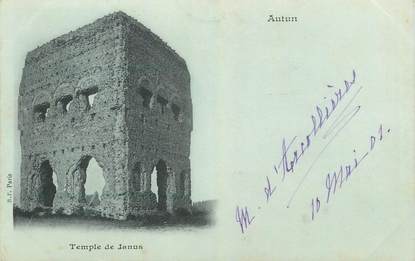 Autun
B.F. Paris
Temple de Janus
M. d'Arcollières
10 Mai 01.